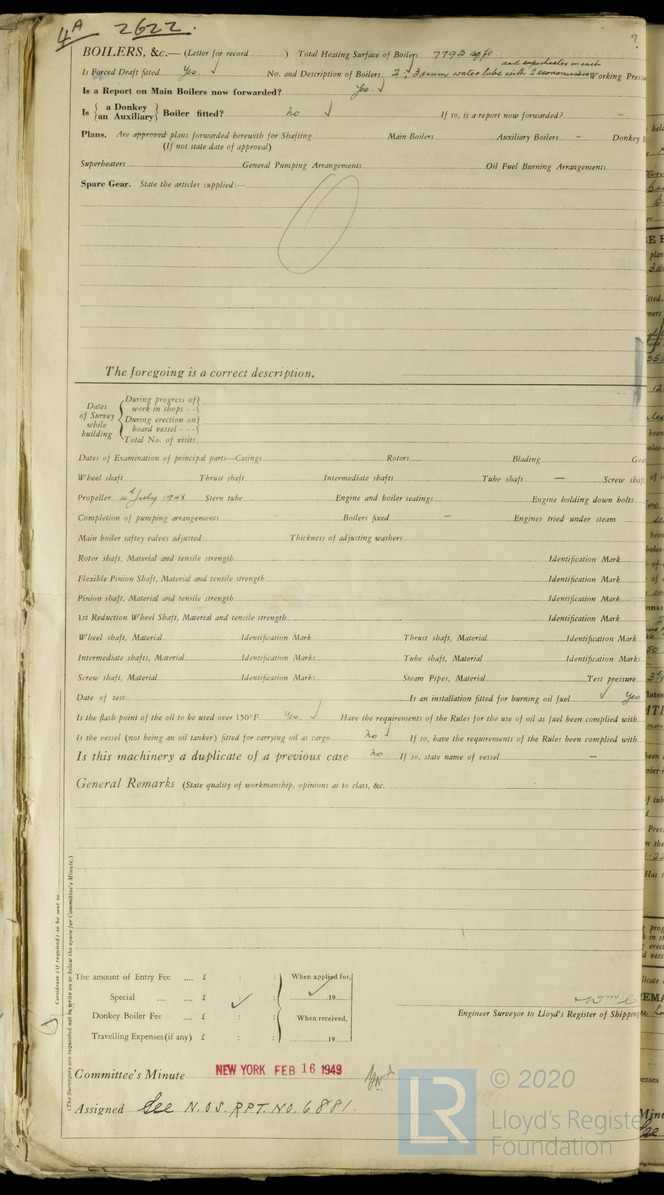 4A 2622.
BOILERS, &c.— (Letter for record ) Total Heating Surface of Boilers 7793 sq ft
and superheater in each
Is Forced Draft fitted Yes. No. and Description of Boilers 2 : 3 drum water tube with 2 economisers Working Press
Is a Report on Main Boilers now forwarded? Yes.
Is { a Donkey / an Auxiliary } Boiler fitted? no If so, is a report now forwarded? —
Plans. Are approved plans forwarded herewith for Shafting Main Boilers Auxiliary Boilers — Donkey
(If not state date of approval)
Superheaters General Pumping Arrangements Oil Fuel Burning Arrangements
Spare Gear. State the articles supplied:—
The foregoing is a correct description,
Dates of Survey while building
During progress of work in shops - -
During erection on board vessel - - -
Total No. of visits
Dates of Examination of principal parts—Casings Rotors Blading Gea
Wheel shaft Thrust shaft Intermediate shafts Tube shaft — Screw shaf
Propeller July 1948 Stern tube Engine and boiler seatings Engine holding down bolts
Completion of pumping arrangements Boilers fixed — Engines tried under steam
Main boiler saftey valves adjusted Thickness of adjusting washers
Rotor shaft, Material and tensile strength Identification Mark
Flexible Pinion Shaft, Material and tensile strength Identification Mark
Pinion shaft, Material and tensile strength Identification Mark
1st Reduction Wheel Shaft, Material and tensile strength Identification Mark
Wheel shaft, Material Identification Mark Thrust shaft, Material Identification Mark
Intermediate shafts, Material Identification Marks Tube shaft, Material Identification Marks
Screw shaft, Material Identification Marks Steam Pipes, Material Test pressure
Date of test Is an installation fitted for burning oil fuel Yes
Is the flash point of the oil to be used over 150°F. Yes Have the requirements of the Rules for the use of oil as fuel been complied with
Is the vessel (not being an oil tanker) fitted for carrying oil as cargo no If so, have the requirements of the Rules been complied with
Is this machinery a duplicate of a previous case no If so, state name of vessel —
General Remarks (State quality of workmanship, opinions as to class, &c.
Certificate (if required) to be sent to
(The Surveyors are requested not to write on or below the space for Committee's Minute.)
The amount of Entry Fee .... £ : : When applied for,
Special .... .... £ : : 19
Donkey Boiler Fee .... £ : : When received,
Travelling Expenses (if any) £ : : 19
Engineer Surveyor to Lloyd's Register of Shipping
Committee's Minute NEW YORK FEB 16 1949
Assigned See N.O.S. RPT. NO. 6881.
LR © 2020
Lloyd's Register
Foundation